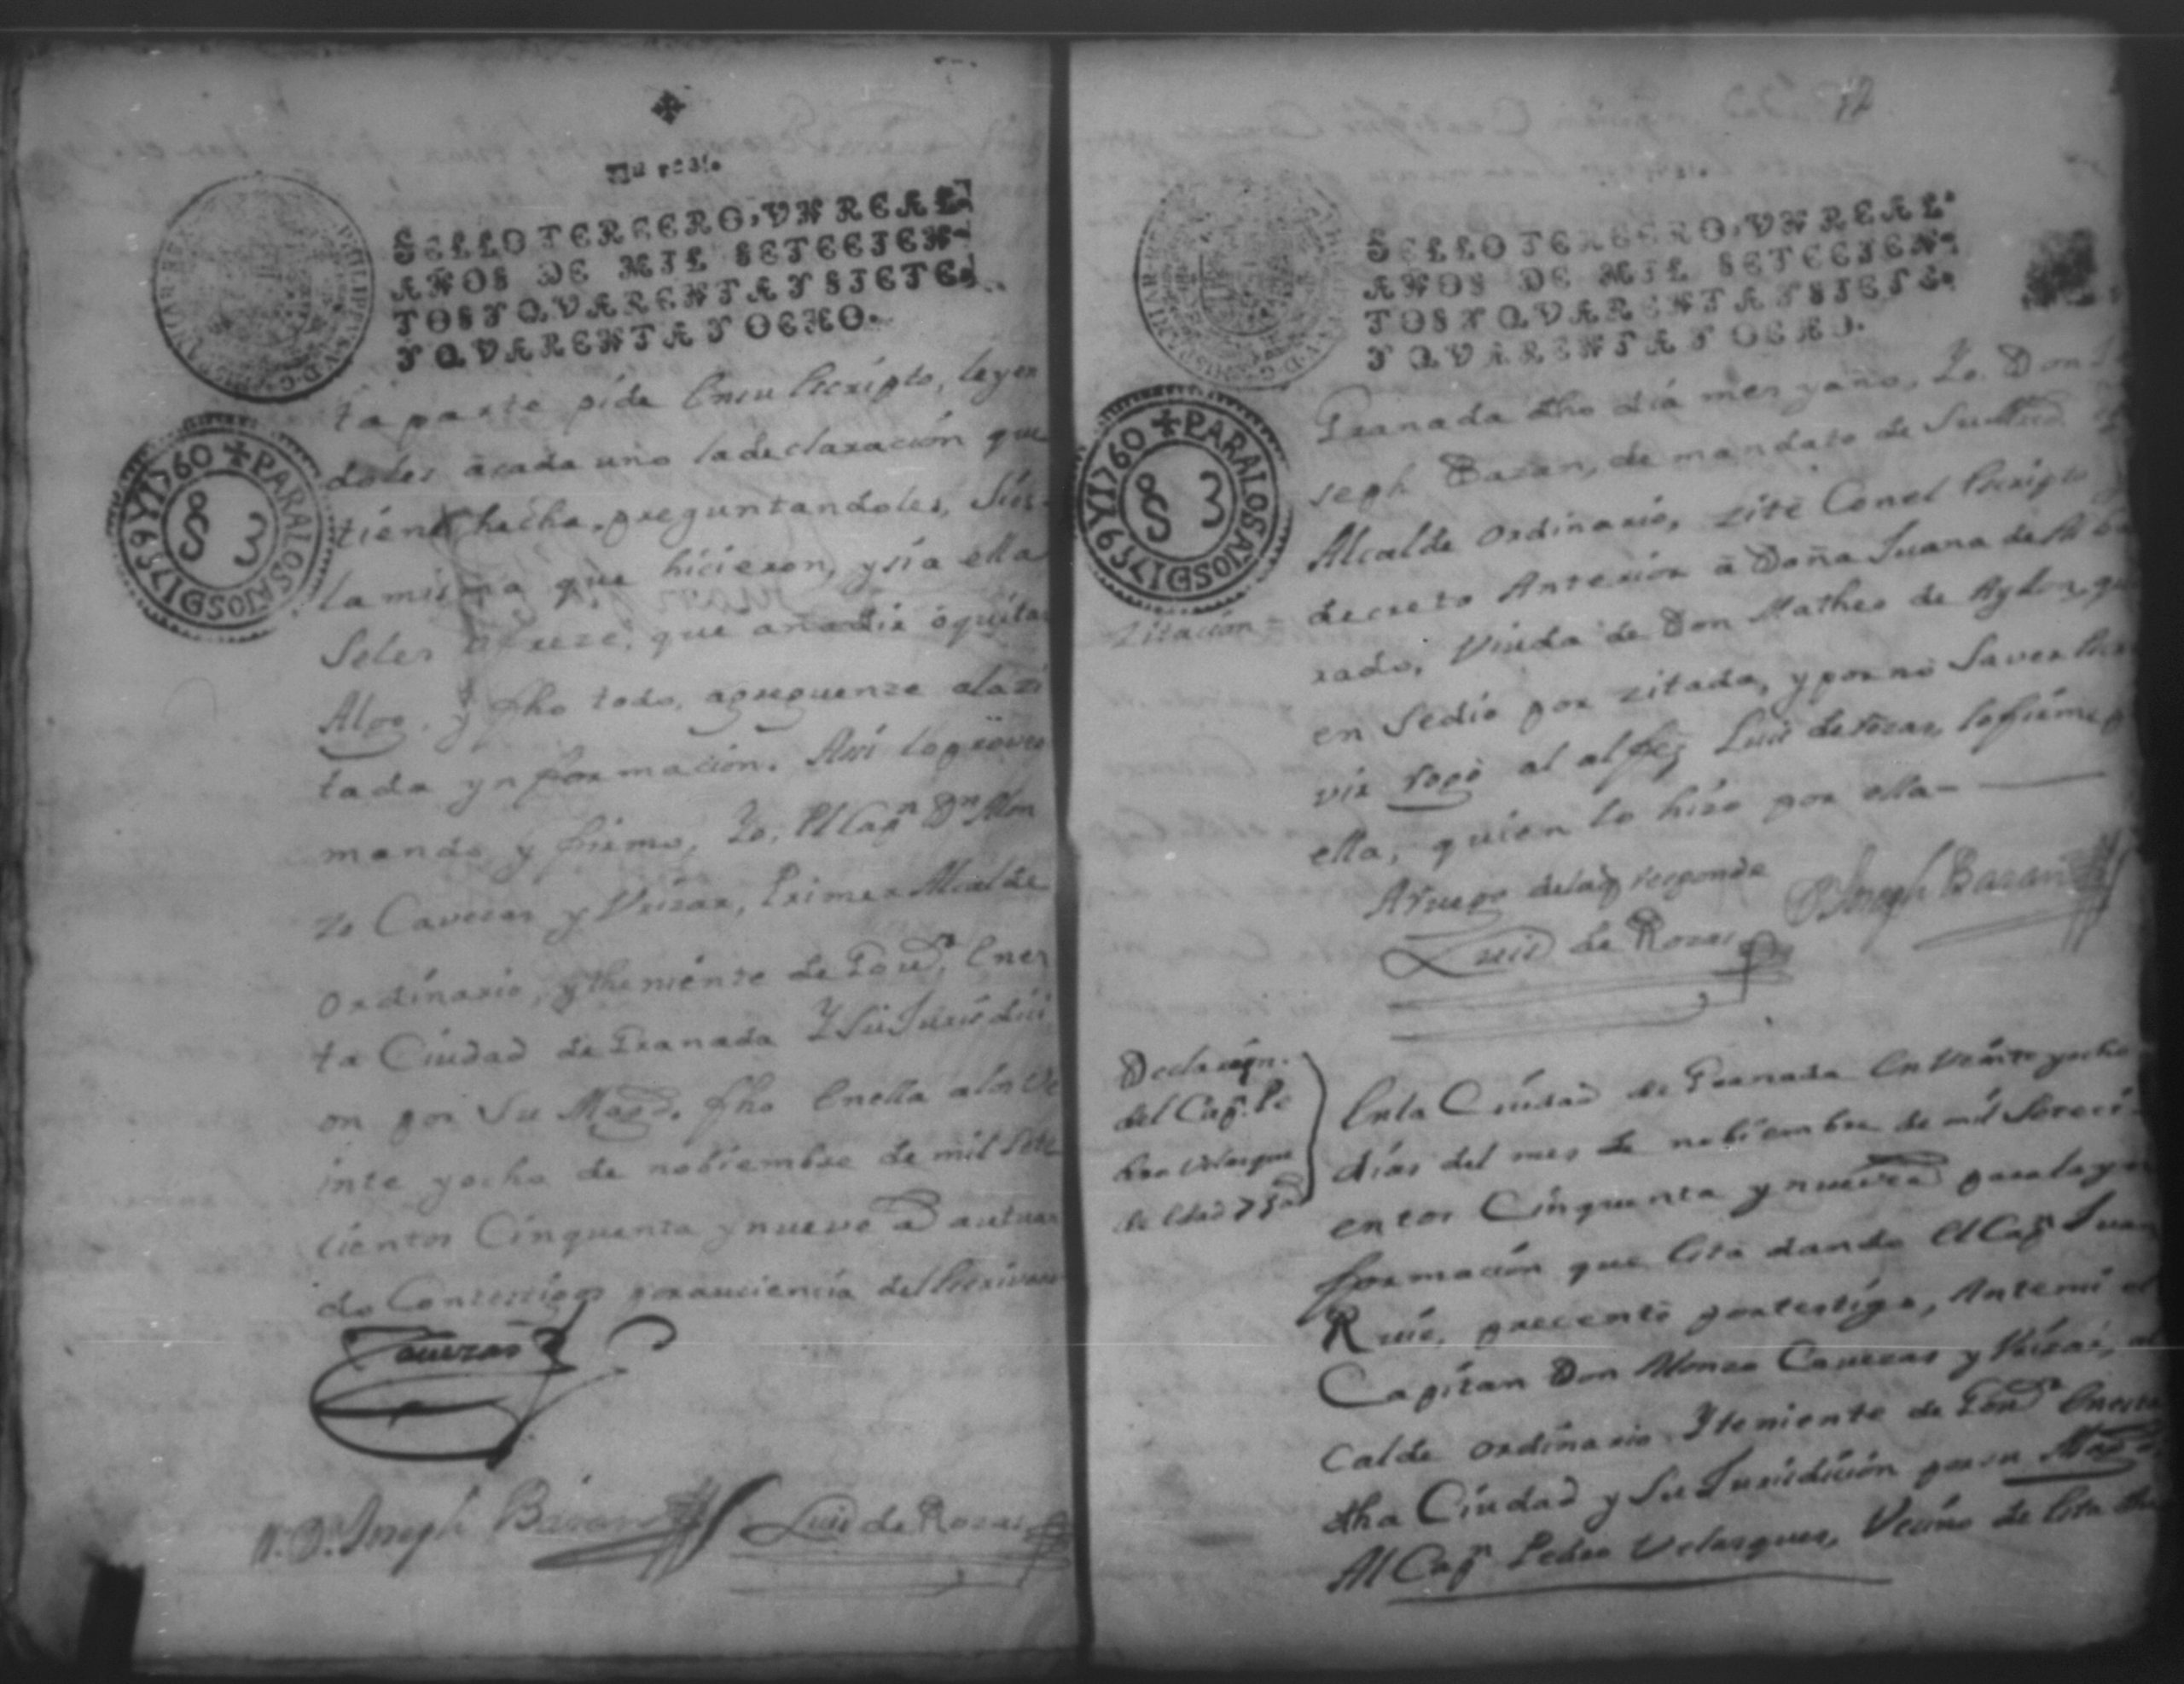 Un real.
SELLO TERCERO, VN REAL
AÑOS DE MIL SETECIEN-
TOS Y QVARENTA Y SIETE,
Y QVARENTA Y OCHO.
PARA LOS AJOS DI759 YI760
S 3
ta parte pide en su Escripto, leyen
doles a cada uno la declaracion que
tiene hecha, preguntandoles, si es
la misma que hicieron, y si a ella
se les ofreze, que anadir o quitar
Algo, y fho todo, agreguenze a la zi
tada ynformacion. Assi lo proveo
mando y firmo, Yo, El Capn Dn Alon
zo Cavezas y Urizar, Primer Alcalde
ordinario, y theniente de Govr, En es
ta Ciudad de Granada Y Su Jurisdici
on por Su Magd. fho En ella a los ve
inte y ocho de nobiembre de mil sete
cientos Cinquenta y nueve as autuan
do Con testigos por auciencia del Escrivano
Cauezas
Dn Joseph Bazan Luis de Rozas
12
SELLO TERCERO, VN REAL
AÑOS DE MIL SETECIEN-
TOS Y QVARENTA Y SIETE,
Y QVARENTA Y OCHO.
PARA LOS AJOS DI759 YI760
S 3
Granada dho dia mes y año, Yo Don Jo
seph Bazan, de mandato de Su Mrd
Alcalde ordinario, zite Con el Escripto y
Zitacion = decreto Anterior a Doña Juana de
rado, Viuda de Don Matheo de Aydon, qui
en se dio por zitada, y por no saver Escri
vir rogo al alfez Luis de Rozas, lo firme p
ella, quien lo hizo por ella -
A ruego de la q responde
Luis de Rozas Dn Joseph Bazan
Declaraçn.
del Capn. Pe
dro Velasques
de edad 75 as
En la Ciudad de Granada En veinte y ocho
dias del mes de nobiembre de mil Seteci
entos Cinquenta y nueve as para la yn
formacion que Esta dando El Capn Juan
Ruis, precentó por testigo, Ante mi el
Capitan Don Alonzo Cavezas y Urizar, al
calde ordinario Y teniente de Govr En esta
dha Ciudad y Su Jurisdicion por su Magd
Al Capn Pedro Velasques, Vecino de Esta dha